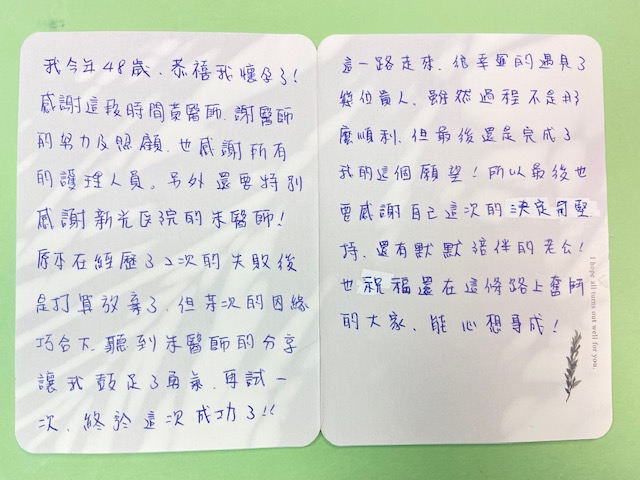 我今年48歲，恭禧我懷孕了！
感謝這段時間黃醫師、謝醫師
的努力及照顧，也感謝所有
的護理人員。另外還要特別
感謝新光医院的朱醫師！
原本在經歷了2次的失敗後
是打算放棄了，但某次的因緣
巧合下，聽到朱醫師的分享
讓我鼓足了勇氣，再試一
次，終於這次成功了!!
這一路走來，倍幸運的遇見了
幾位貴人，雖然過程不是那
麼順利，但最後還是完成了
我的這個願望！所以最後也
要感謝自己這次的決定與堅
持，還有默默陪伴的老公！
也祝福還在這條路上奮鬥
的大家，能心想事成！
I hope all turns out well for you.